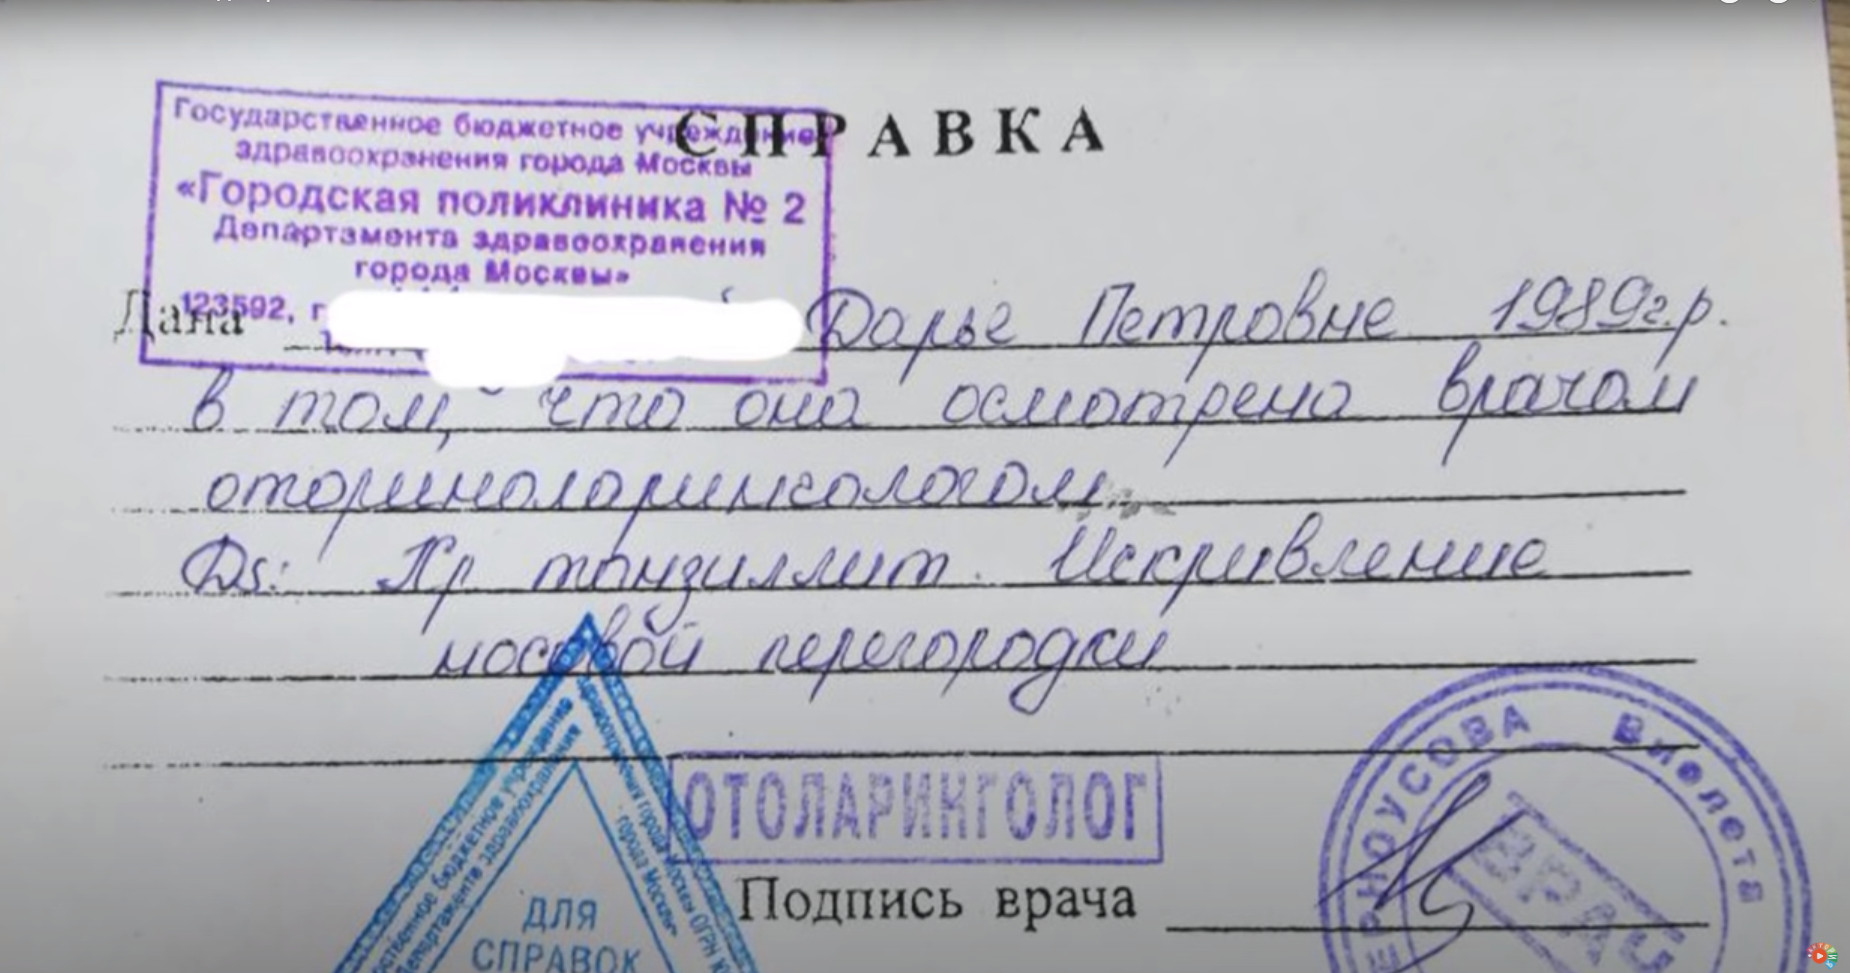 СПРАВКА
Государственное бюджетное учреждение
здравоохранения города Москвы
«Городская поликлиника № 2
Департамента здравоохранения
города Москвы»
123592, г
Дана Дарье Петровне 1989г.р.
в том, что она осмотрена врачом
оториноларингологом
Ds: Хр тонзиллит. Искривление
носовой перегородки
ОТОЛАРИНГОЛОГ
Подпись врача
бюджетное учреждение
здравоохранения города Москвы ОГРН
Департамента здравоохранения
города Москвы»
ДЛЯ
СПРАВОК
ЕРНОУСОВА Виолета
ВРАЧ